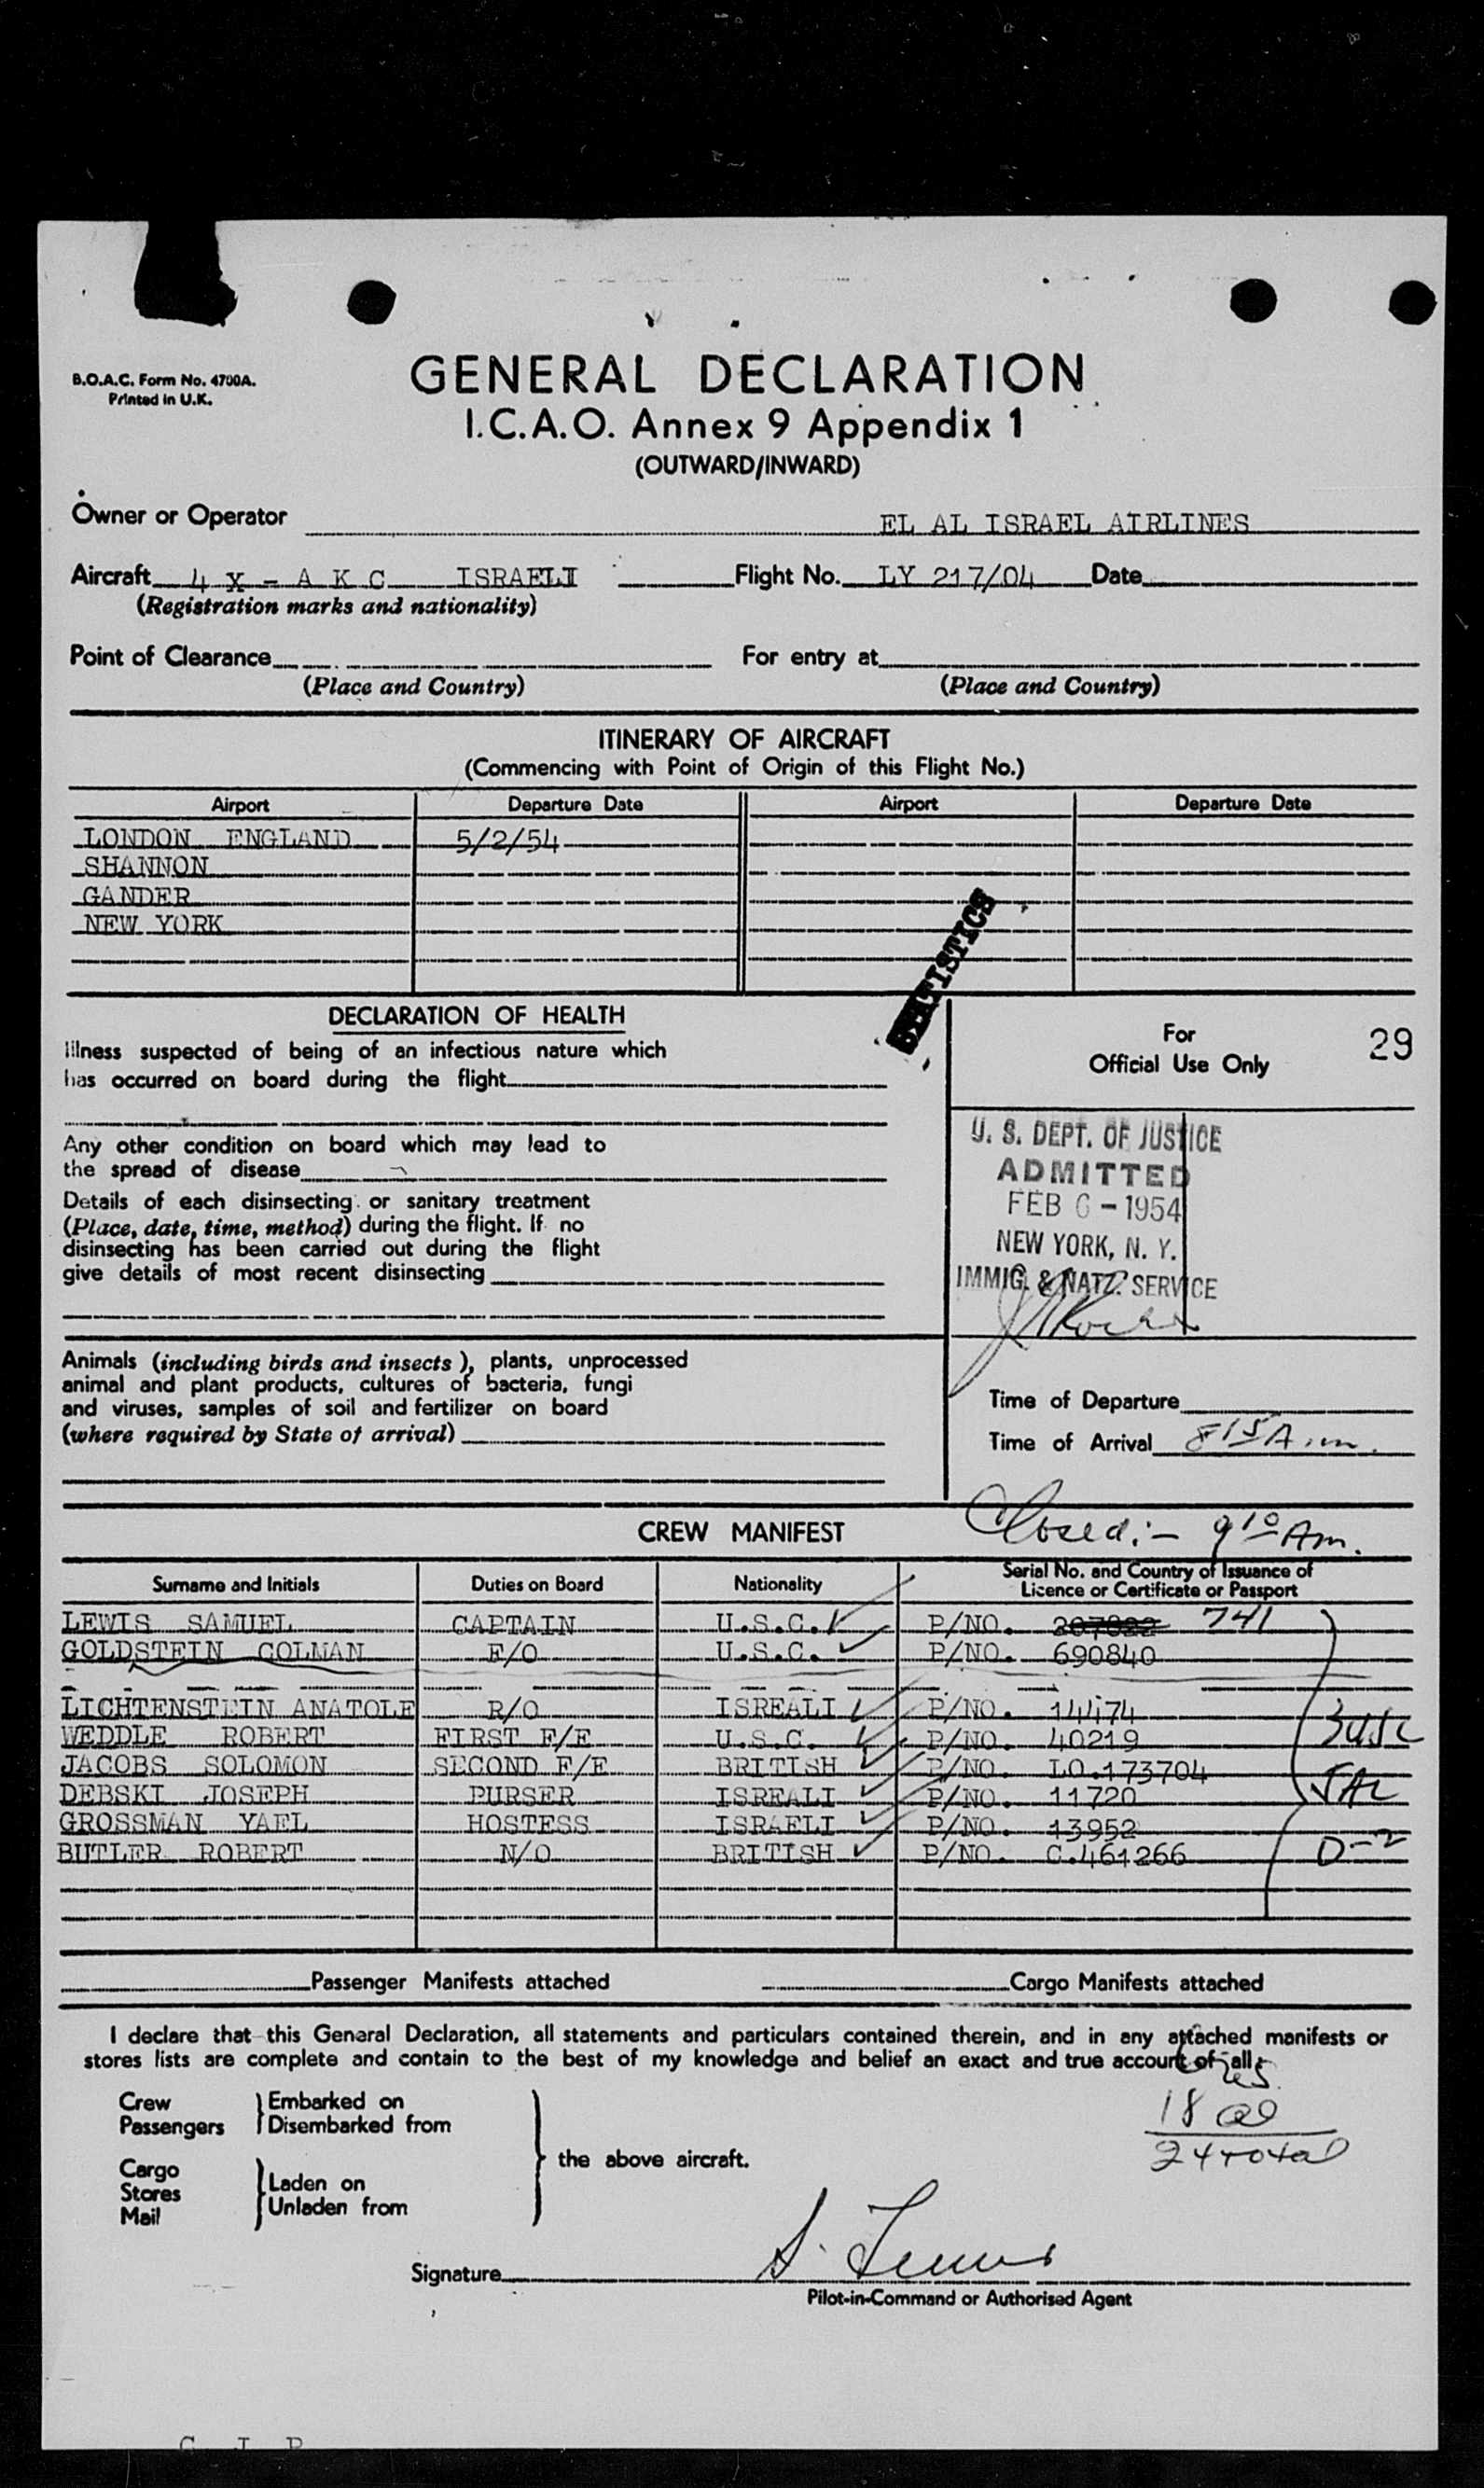 B.O.A.C. Form No. 4700A.
Printed in U.K.
GENERAL DECLARATION
I.C.A.O. Annex 9 Appendix 1
(OUTWARD/INWARD)
Owner or Operator EL AL ISRAEL AIRLINES
Aircraft 4 X - A K C ISRAELI Flight No. LY 217/04 Date
(Registration marks and nationality)
Point of Clearance For entry at
(Place and Country) (Place and Country)
ITINERARY OF AIRCRAFT
(Commencing with Point of Origin of this Flight No.)
Airport Departure Date Airport Departure Date
LONDON ENGLAND 5/2/54
SHANNON
GANDER
NEW YORK
STATISTICS
DECLARATION OF HEALTH
Illness suspected of being of an infectious nature which
has occurred on board during the flight
Any other condition on board which may lead to
the spread of disease
Details of each disinsecting or sanitary treatment
(Place, date, time, method) during the flight. If no
disinsecting has been carried out during the flight
give details of most recent disinsecting
Animals (including birds and insects), plants, unprocessed
animal and plant products, cultures of bacteria, fungi
and viruses, samples of soil and fertilizer on board
(where required by State of arrival)
For
Official Use Only
29
U. S. DEPT. OF JUSTICE
ADMITTED
FEB 6 - 1954
NEW YORK, N. Y.
IMMIG. & NATZ. SERVICE
Time of Departure
Time of Arrival 815 A.m.
Closed:- 910 Am.
CREW MANIFEST
Surname and Initials Duties on Board Nationality Serial No. and Country of Issuance of
Licence or Certificate or Passport
LEWIS SAMUEL CAPTAIN U.S.C. P/NO. 207022 741
GOLDSTEIN COLMAN F/O U.S.C. P/NO. 690840
LICHTENSTEIN ANATOLE R/O ISREALI P/NO. 14474
WEDDLE ROBERT FIRST F/E U.S.C. P/NO. 40219 3 USC
JACOBS SOLOMON SECOND F/E BRITISH P/NO. LO.173704
DEBSKI JOSEPH PURSER ISREALI P/NO. 11720 5 AL
GROSSMAN YAEL HOSTESS ISRAELI P/NO. 13952
BUTLER ROBERT N/O BRITISH P/NO. C.461266 D-2
Passenger Manifests attached Cargo Manifests attached
I declare that this General Declaration, all statements and particulars contained therein, and in any attached manifests or
stores lists are complete and contain to the best of my knowledge and belief an exact and true account of all:
18 al
24 total
Crew
Passengers
Embarked on
Disembarked from
Cargo
Stores
Mail
Laden on
Unladen from
the above aircraft.
Signature S. Lewis
Pilot-in-Command or Authorised Agent